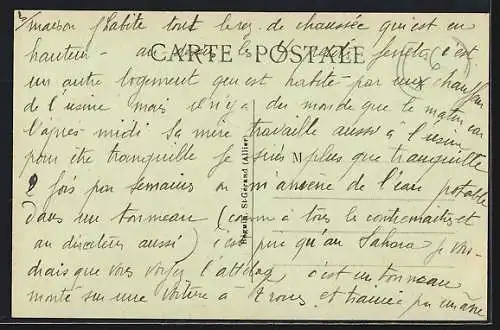 maison j'habite tout le rez de chaussée qui est en
hauteur - au dessus les 6 petites fenêtres c'est
CARTE POSTALE
un autre logement qui est habité par un chauffeur
de l'usine mais il n'y a du monde que le matin car
l'après midi sa mère travaille aussi à l'usine
pour être tranquille je suis plus que tranquille
M
2 fois par semaines on m'amène de l'eau potable
dans un tonneau (comme à tous les contremaitres et
au directeur aussi) c'est pire qu'au Sahara je vou-
drais que vous voyez l'attelage c'est un tonneau
monté sur une voiture à 4 roues et trainée par un âne
Béguin, St-Gérand (Allier)